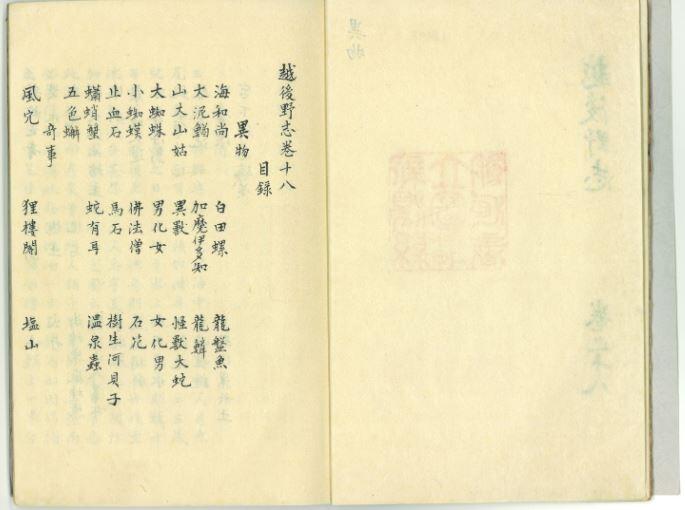 越後野志巻十八
目録
異物
海和尚 白田螺 龍盤魚
大泥鰌 加麾伊多知
山丈山姑 異獸 怪獸大蛇
大蜘蛛 男化女 女化男
小蜘蟆 佛法僧 石花
止血石 馬石 樹生河貝子
蠨蛸蟹 蛇有耳 温泉蟲
五色蠏
奇事
風穴 狸樓閣 塩山